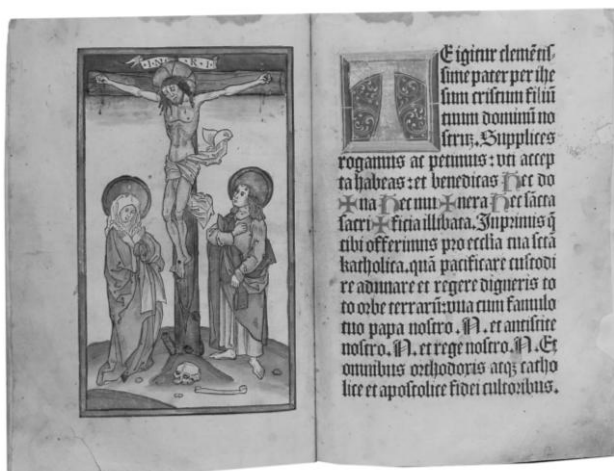 I·N·R·I
TE igitur clemētis
sime pater per ihe
sum cristum filiū
tuum dominū no
strū. Supplices
rogamus ac petimus: vti accep
ta habeas: et benedicas hec do
✠na hec mu✠nera hec sācta
sacri✠ficia illibata. Inprimis q̄
tibi offerimus pro ecclīa tua sctā
katholica. quā pacificare custodi
re adunare et regere digneris to
to orbe terrarū: vna cum famulo
tuo papa nostro. N. et antistite
nostro. N. et rege nostro. N. Et
omnibus orthodoxis atqꝫ catho
lice et apostolice fidei cultoribus.